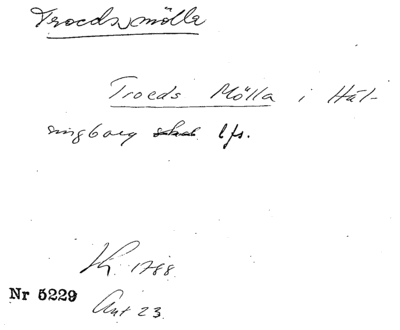 Troedsmölla
Troeds Mölla i Häl-
singborg lfs.
Vr 1788
Nr 5229
Ant 23.